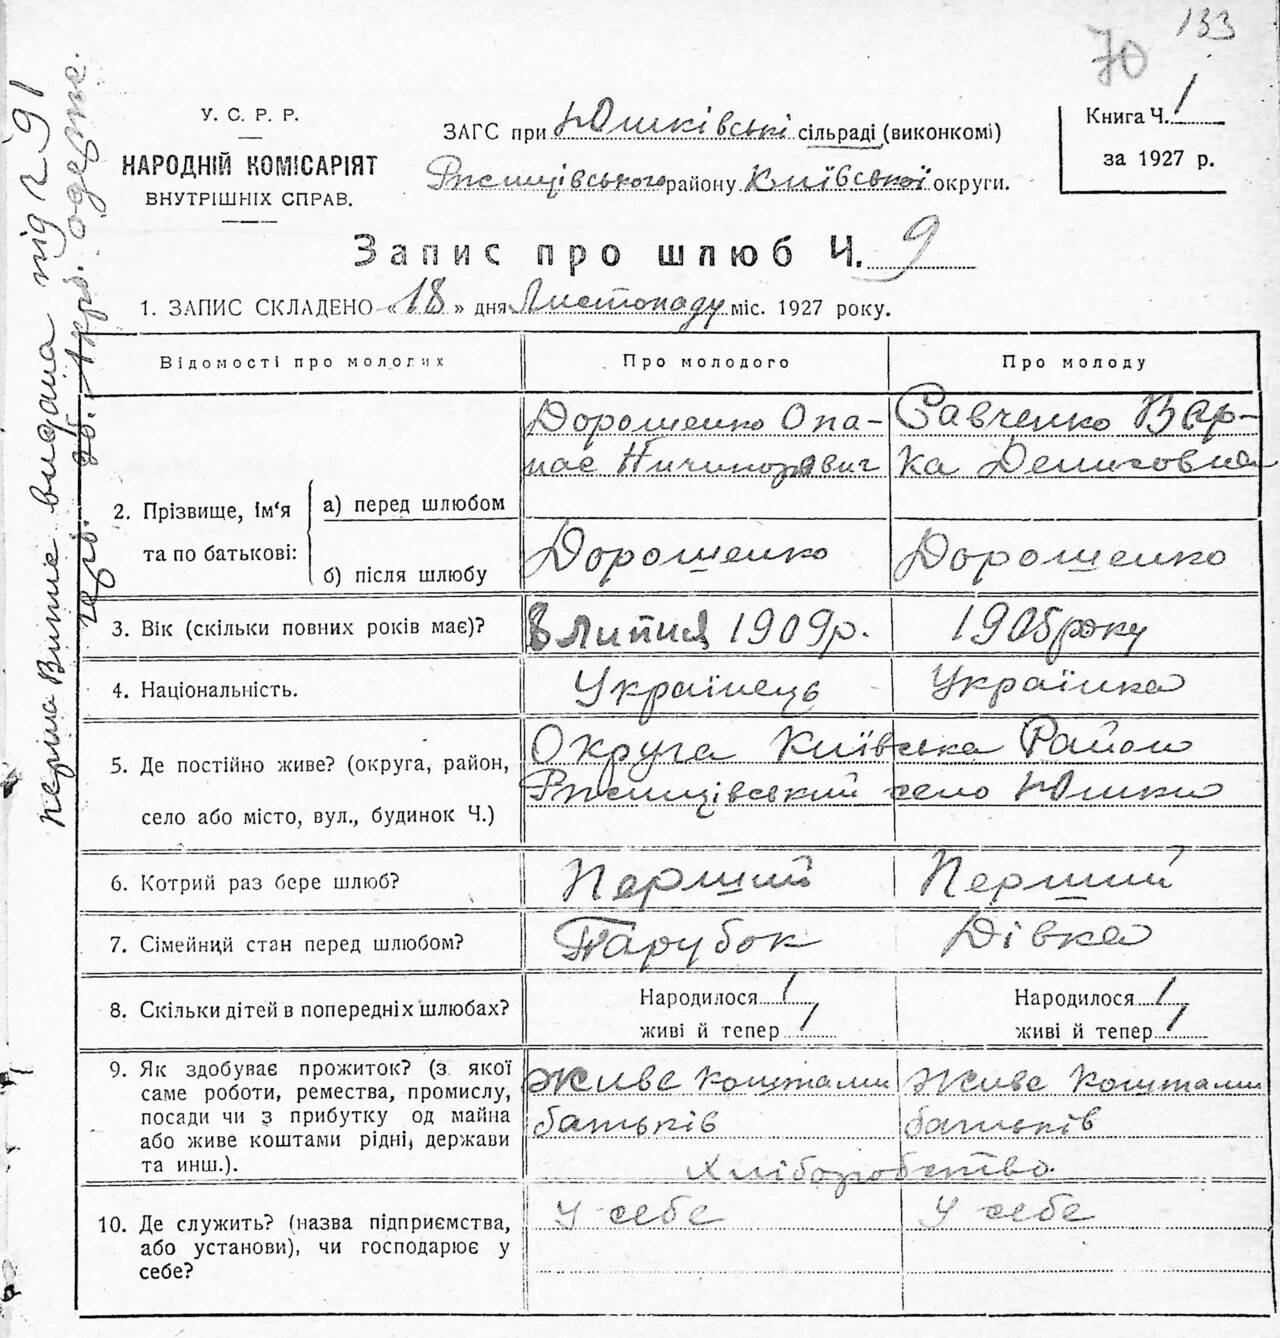 133
70
У. С. Р. Р.
НАРОДНІЙ КОМІСАРІЯТ
ВНУТРІШНІХ СПРАВ.
ЗАГС при Юшківські сільраді (виконкомі)
Ржищівського району Київської округи.
Книга Ч. 1
за 1927 р.
Запис про шлюб Ч. 9
1. ЗАПИС СКЛАДЕНО «18» дня Листопаду міс. 1927 року.
Відомості про мологих
Про молодого
Про молоду
2. Прізвище, ім'я та по батькові:
а) перед шлюбом
Дорошенко Опа-
нас Ничипорович
Савченко Вар-
ка Денисовна
б) після шлюбу
Дорошенко
Дорошенко
3. Вік (скільки повних років має)?
8 Липня 1909 р.
1905 року
4. Національність.
Українець
Українка
5. Де постійно живе? (округа, район,
село або місто, вул., будинок Ч.)
Округа Київська Район
Ржищівський село Юшки
6. Котрий раз бере шлюб?
Перший
Перший
7. Сімейний стан перед шлюбом?
Парубок
Дівка
8. Скільки дітей в попередніх шлюбах?
Народилося /
живі й тепер /
Народилося /
живі й тепер /
9. Як здобуває прожиток? (з якої
саме роботи, ремества, промислу,
посади чи з прибутку од майна
або живе коштами рідні, держави
та инш.).
Живе коштами
батьків
Живе коштами
батьків
Хліборобство
10. Де служить? (назва підприємства,
або установи), чи господарює у
себе?
У себе
У себе
перша Випис видана під № 91
одерже.